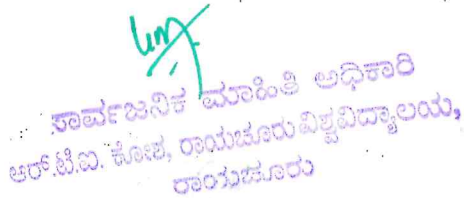 ಸಾರ್ವಜನಿಕ ಮಾಹಿತಿ ಅಧಿಕಾರಿ
ಆರ್.ಟಿ.ಐ. ಕೋಶ, ರಾಯಚೂರು ವಿಶ್ವವಿದ್ಯಾಲಯ,
ರಾಯಚೂರು